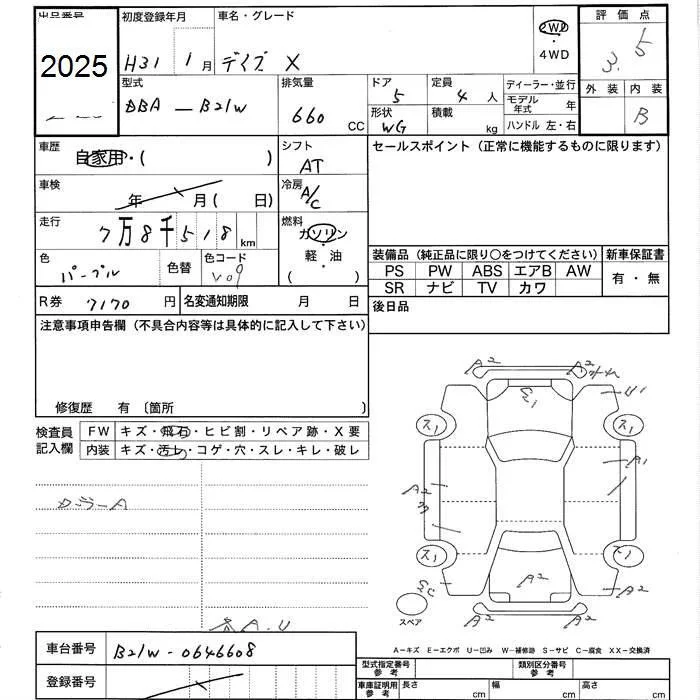 出品番号 初度登録年月 車名・グレード 評価点
2025 H31 1月 デイズ X 2WD・4WD 3.5
型式 排気量 ドア 定員 ディーラー・並行 外装 内装
DBA-B21W 660 CC 5 4人 モデル年式 年 B
形状 積載 ハンドル 左・右
WG kg
車歴 自家用・( ) シフト AT セールスポイント(正常に機能するものに限ります)
車検 年 月( 日) 冷房 A/C
走行 7万8千518km 燃料 ガソリン
軽・油
( )
色 パープル 色替 色コード V09
装備品(純正品に限り○をつけてください) 新車保証書
PS PW ABS エアB AW 有・無
SR ナビ TV カワ
R券 7170円 名変通知期限 月 日 後日品
注意事項申告欄(不具合内容等は具体的に記入して下さい)
修復歴 有 〔箇所 〕
検査員記入欄 FW キズ・飛石・ヒビ割・リペア跡・X要
内装 キズ・汚レ・コゲ・穴・スレ・キレ・破レ
A2 A2
U1
ス1 ス1
A1
A2
ス1 ス1
A2 A2
A2 A2
スペア
A.U
A-キズ E-エクボ U-凹み W-補修跡 S-サビ C-腐食 XX-交換済
車台番号 B21W-0646608
登録番号
型式指定番号 参考 類別区分番号 参考
車庫証明用 参考 長さ cm 幅 cm 高さ cm